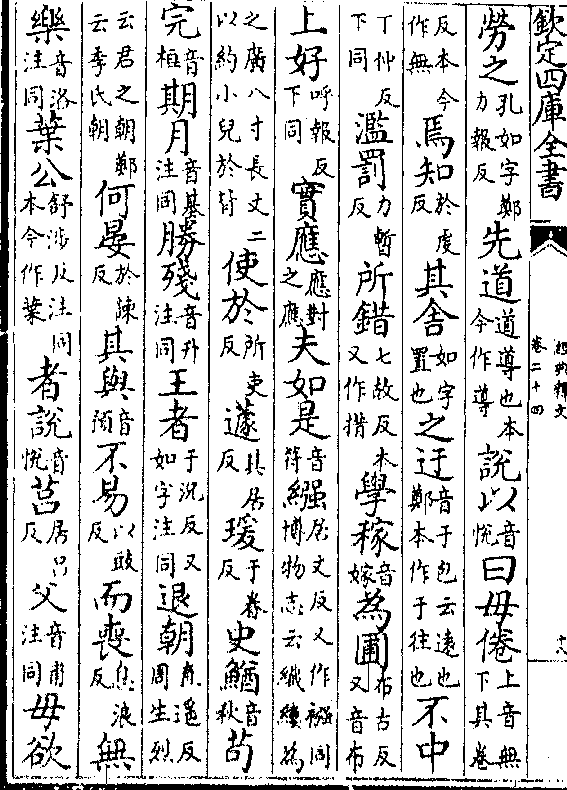 欽定四庫全書
經典釋文
卷二十四
十八
勞之孔如字鄭力報反先道道導也本今作導說以音悅曰毋倦上音無下其卷
反本今作無焉知於虔反其舍如字置也之迂音于包云遠也鄭本作于往也不中
丁仲反下同濫罰力暫反所錯七故反本又作措學稼音嫁為圃布古反又音布
上好呼報反下同實應應對之應夫如是音符繦居丈反又作襁同博物志云織縷為
之廣八寸長丈二以約小兒於背使於所吏反蘧其居反瑗于眷反史鰌音秋苟
完音桓期月音基注同勝殘音升注同王者于況反又如字注同退朝直遥反周生烈
云君之朝鄭云季氏朝何晏於諫反其與音預不易以豉反而喪息浪反無
樂音洛注同葉公舒涉反注同本今作葉者說音悅莒居吕反父音甫注同毋欲